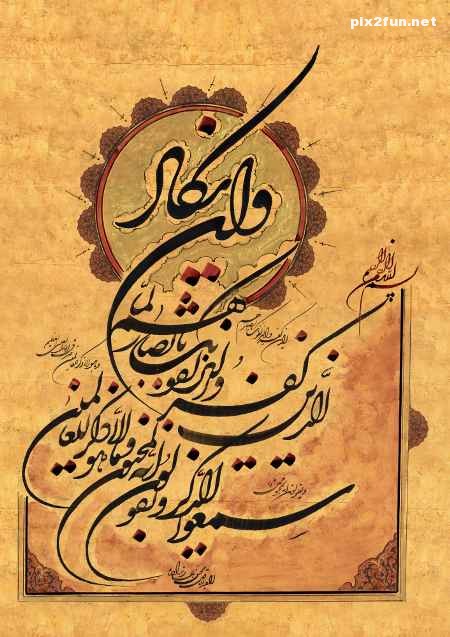 pix2fun.net
بسم الله الرحمن الرحیم
وان یکاد
الذین کفروا
لیزلقونک بابصارهم لما
سمعوا الذکر و یقولون انه لمجنون
و ما هو الا ذکر للعالمین